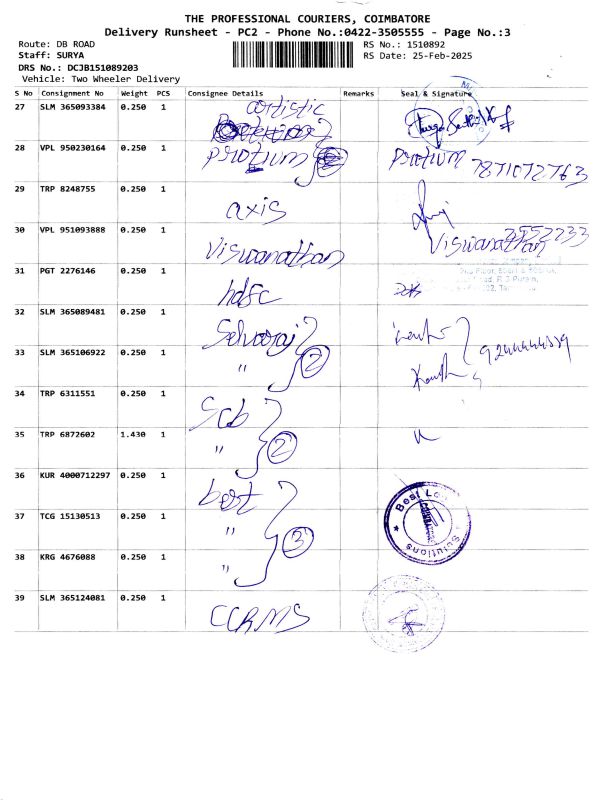 THE PROFESSIONAL COURIERS, COIMBATORE
Delivery Runsheet - PC2 - Phone No.:0422-3505555 - Page No.:3
Route: DB ROAD
RS No.: 1510892
Staff: SURYA
RS Date: 25-Feb-2025
DRS No.: DCJB151089203
Vehicle: Two Wheeler Delivery
S No Consignment No Weight PCS Consignee Details Remarks Seal & Signature
27 SLM 365093384 0.250 1 artistic
28 VPL 950230164 0.250 1 protium 2 protium 7871072763
29 TRP 8248755 0.250 1 axis
30 VPL 951093888 0.250 1 Viswanathan Viswanathan
31 PGT 2276146 0.250 1 hdfc
32 SLM 365089481 0.250 1 Selvaraj
33 SLM 365106922 0.250 1 " 2
34 TRP 6311551 0.250 1 Scb
35 TRP 6872602 1.430 1 " 2
36 KUR 4000712297 0.250 1 best
37 TCG 15130513 0.250 1 " 3
38 KRG 4676088 0.250 1 "
39 SLM 365124081 0.250 1 CCRMS
Best
Solutions